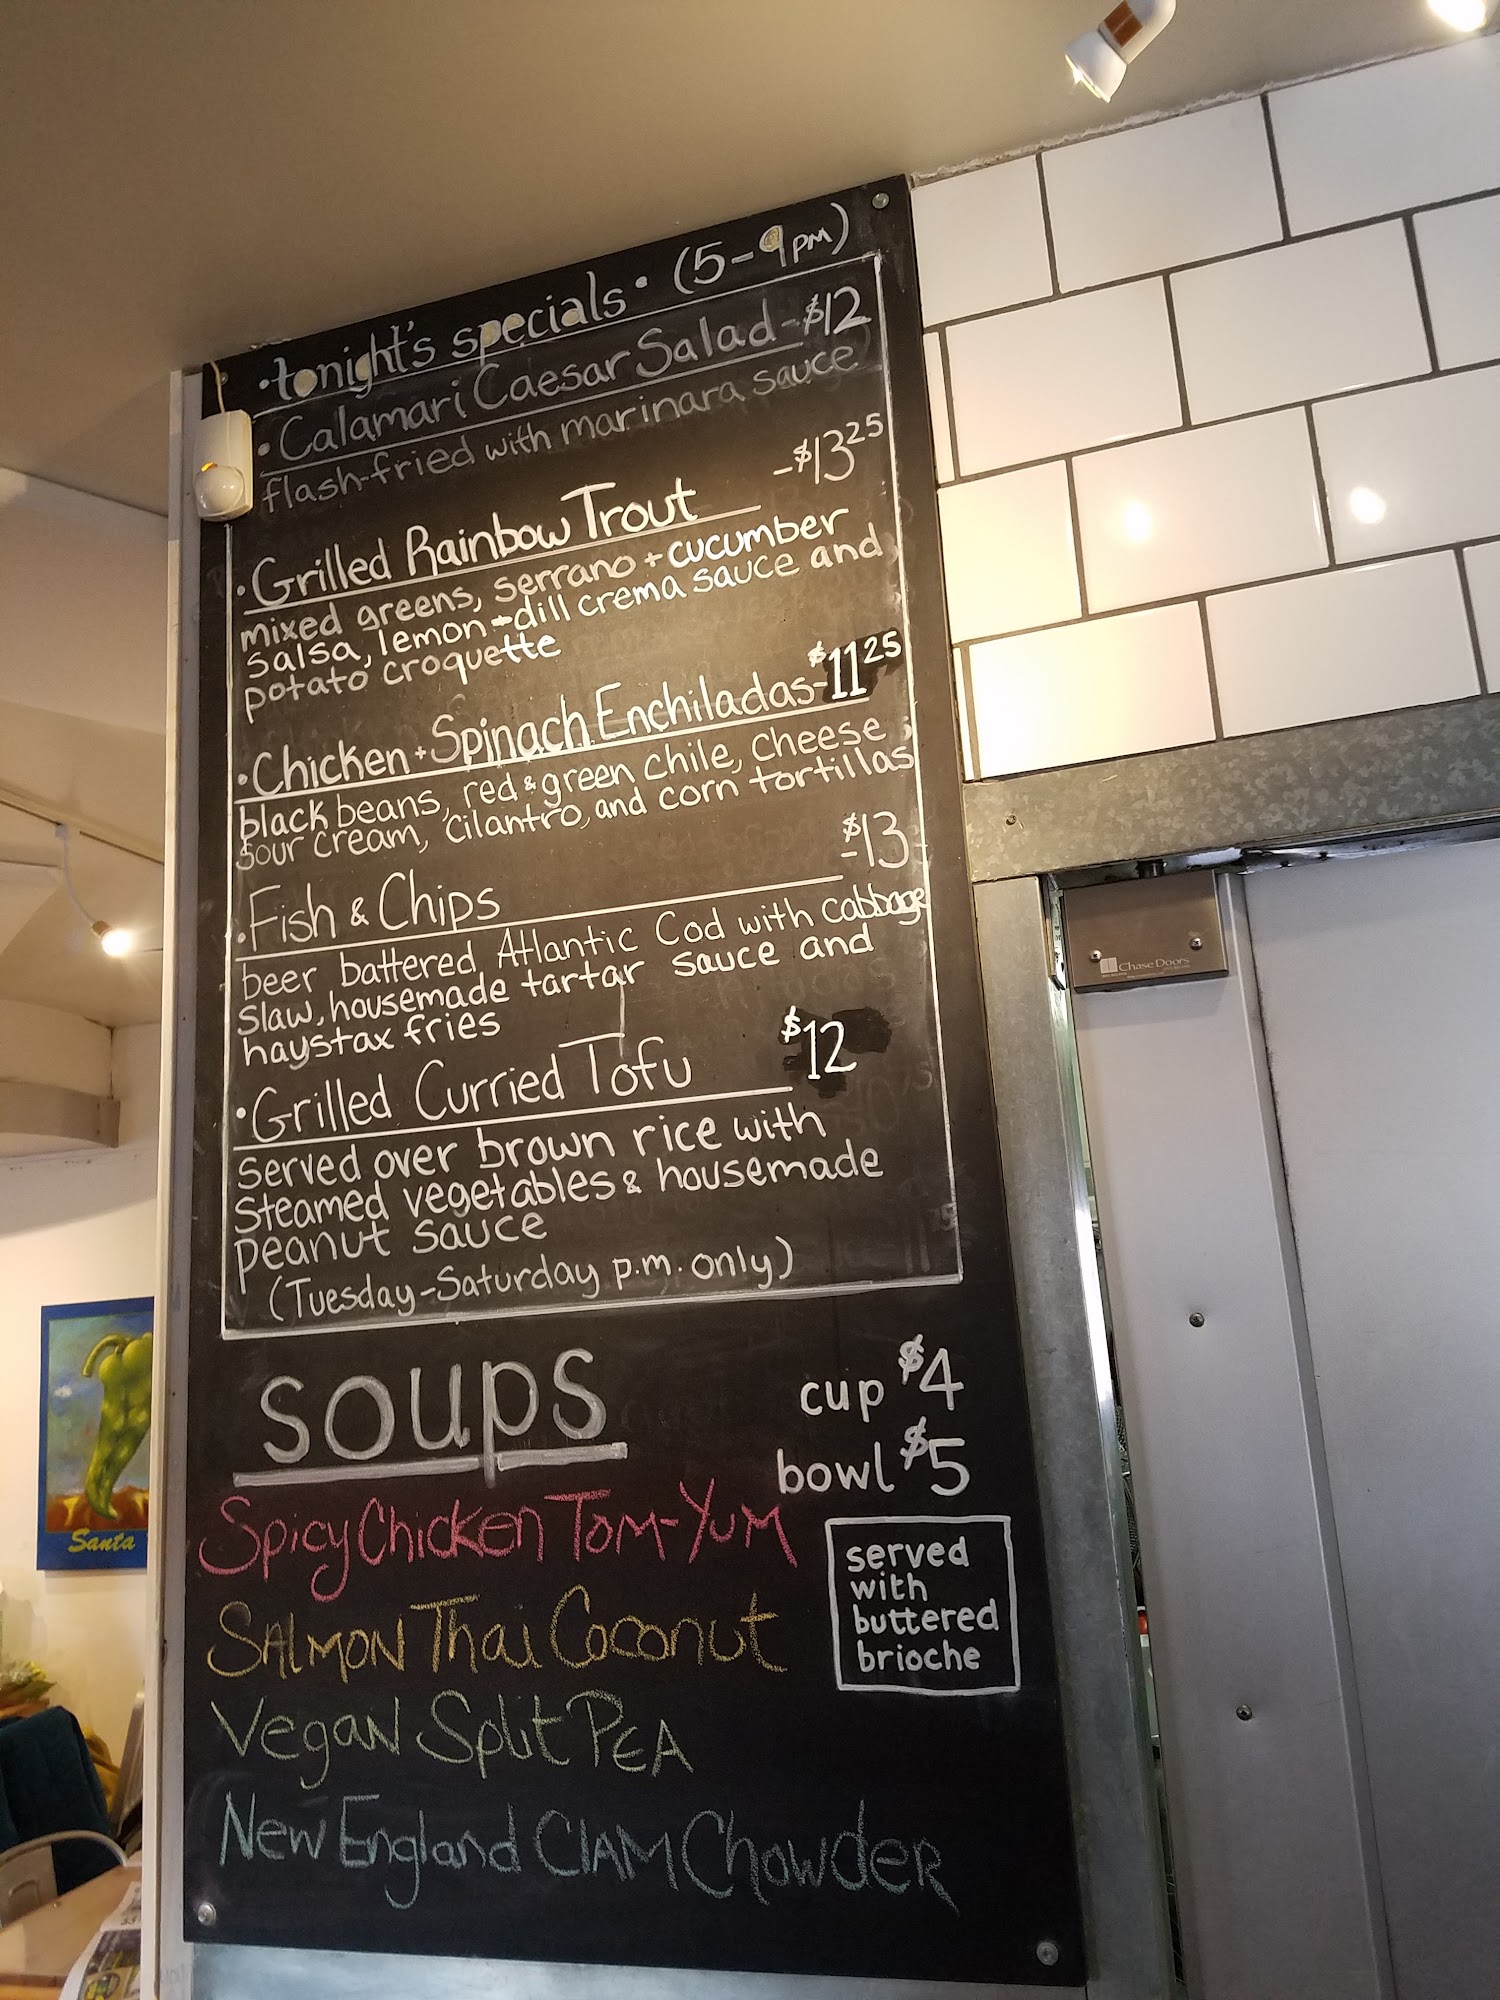 •tonight's specials• (5-9pm)
•Calamari Caesar Salad-$12
flash-fried with marinara sauce
-$13 25
•Grilled Rainbow Trout
mixed greens, serrano + cucumber
salsa, lemon-dill crema sauce and
potato croquette
•Chicken + Spinach Enchiladas-$11 25
black beans, red & green chile, cheese,
sour cream, cilantro, and corn tortillas
-$13-
•Fish & Chips
beer battered Atlantic Cod with cabbage
slaw, housemade tartar sauce and
haystax fries
•Grilled Curried Tofu $12
served over brown rice with
steamed vegetables & housemade
peanut sauce
(Tuesday-Saturday p.m. only)
soups
cup $4
bowl $5
Spicy Chicken Tom-Yum
Salmon Thai Coconut
Vegan Split Pea
New England Clam Chowder
served
with
buttered
brioche
Chase Doors
Santa